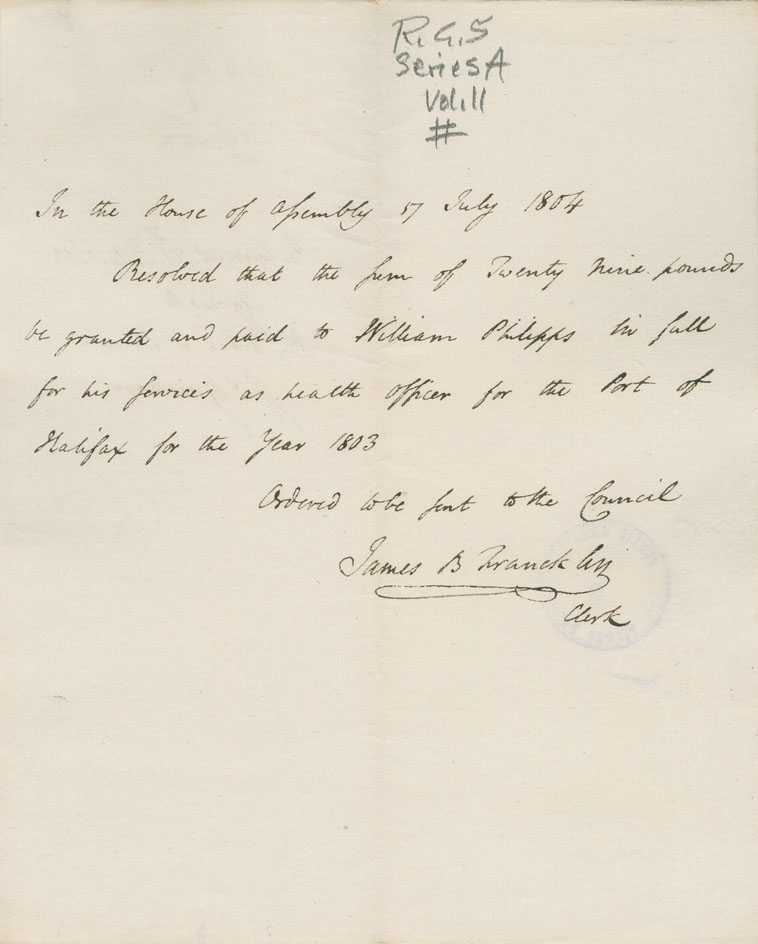 R.G.5
Series A
Vol. 11
#
In the House of Assembly 17 July 1804
Resolved that the sum of Twenty Nine pounds
be granted and paid to William Philipps in full
for his services as health officer for the Port of
Halifax for the Year 1803
Ordered to be sent to the Council
James B Francklin
Clerk